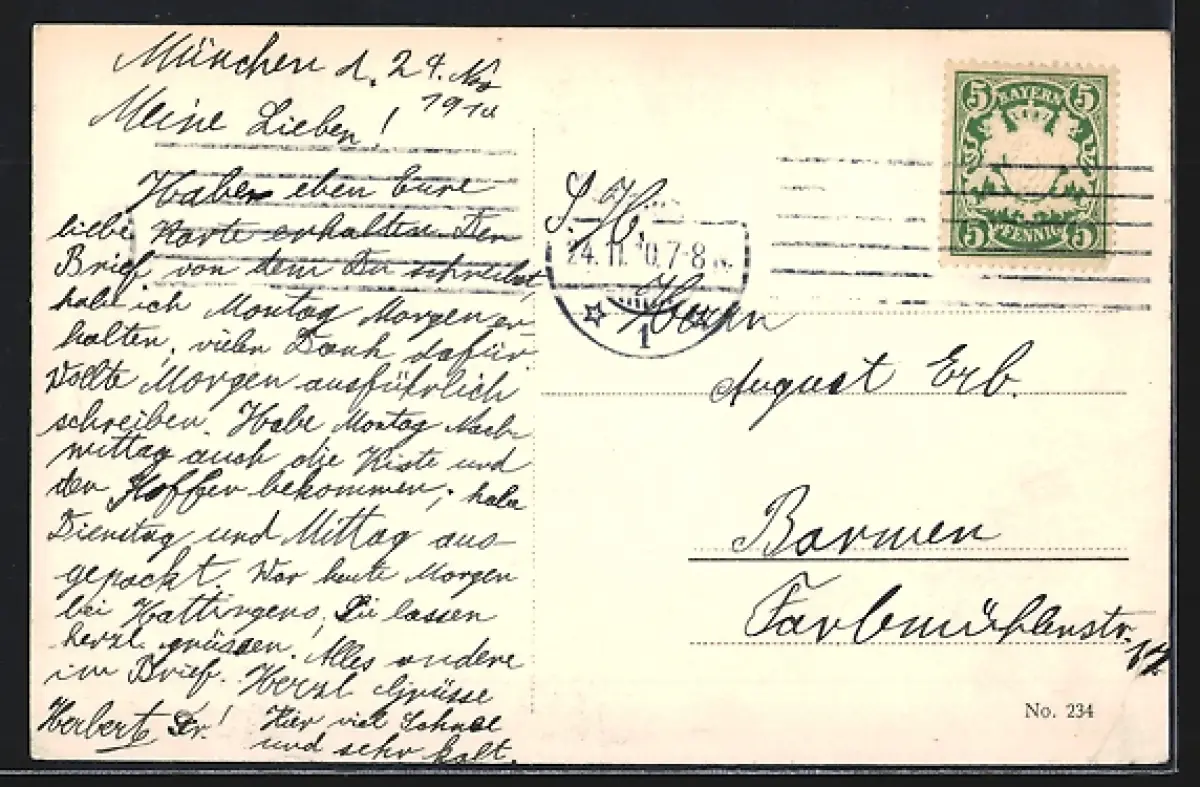 München d. 24. Nov
1910
Meine Lieben!
Habe eben Eure
liebe Karte erhalten. Den
Brief von dem Du schreibst,
habe ich Montag Morgen er-
halten, vielen Dank dafür.
Wollte Morgen ausführlich
schreiben. Habe Montag Nach-
mittag auch die Kiste und
den Koffer bekommen, habe
Dienstag und Mittag aus-
gepackt. War heute Morgen
bei Hattingens, Sie lassen
herzl. grüssen. Alles andere
im Brief. Herzl Grüsse
Herbert Hier viel Schnee
und sehr kalt.
5 BAYERN 5
5 PFENNIG 5
S. H.
24. 11. 10. 7-8 N.
1
Herrn
August Erb.
Barmen
Farbmühlenstr.
No. 234